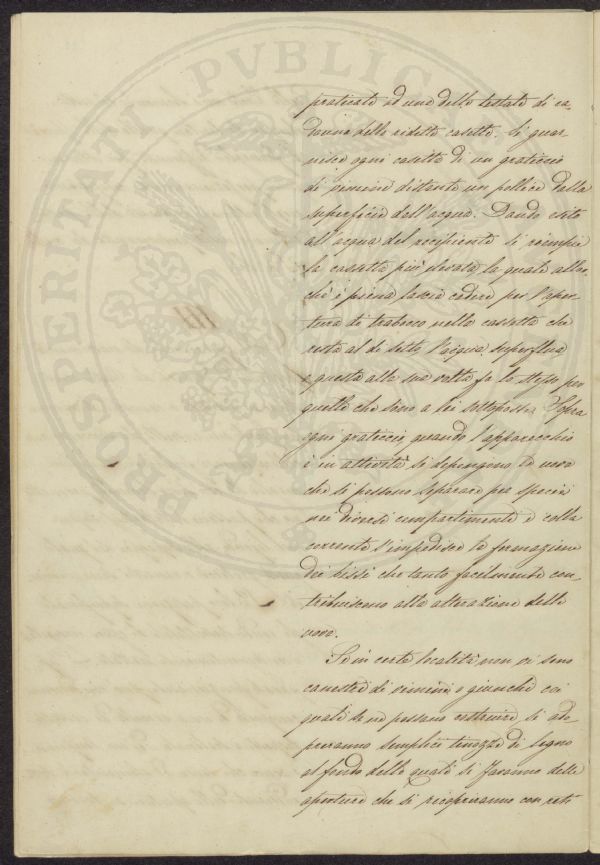 praticate ad una delle testate di ca-
dauna delle ridette casette. Si guar-
nisce ogni casetta di un graticcio
di vimini distante un pollice dalla
superficie dell'acqua. Dando esito
all'acqua del recipiente si riempie
la cassetta più elevata la quale allor-
chè è piena lascia cadere per l'aper-
tura di trabocco nella cassetta che
resta al di sotto l'acqua superflua
e questa alla sua volta fa lo stesso per
quelle che sono a lei sottoposte. Sopra
ogni graticcio, quando l'apparecchio
è in attività si depongono le uova
che si possono separare per specie
nei diversi compartimenti e colla
corrente s'impedisce la formazione
dei bissi che tanto facilmente con-
tribuiscono alla alterazione delle
uova.
Se in certe località non vi sono
canestri di vimini o giunchi coi
quali se ne possano costruire si ado-
preranno semplici tinozze di legno
al fondo delle quali si faranno delle
aperture che si ricopriranno con reti
PROSPERITATI PVBLICAE